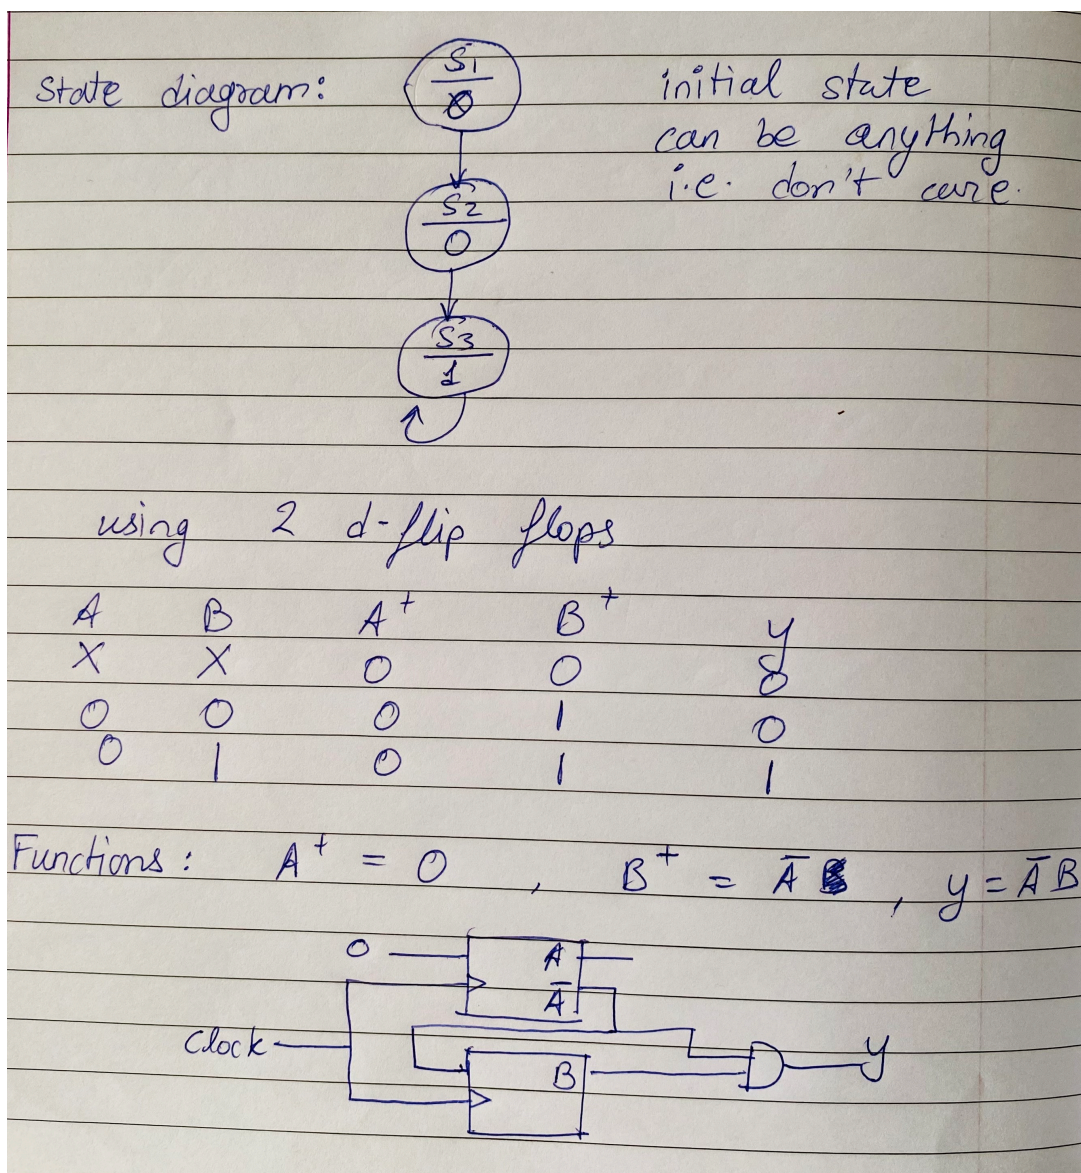 State diagram:
S1
0
initial state
can be anything
i.e. don't care.
S2
0
S3
1
using 2 d-flip flops
A B A⁺ B⁺ y
X X 0 0 0
0 0 0 1 0
0 1 0 1 1
Functions: A⁺ = 0 , B⁺ = Ā , y = Ā B
0 A
Ā
Clock y
B